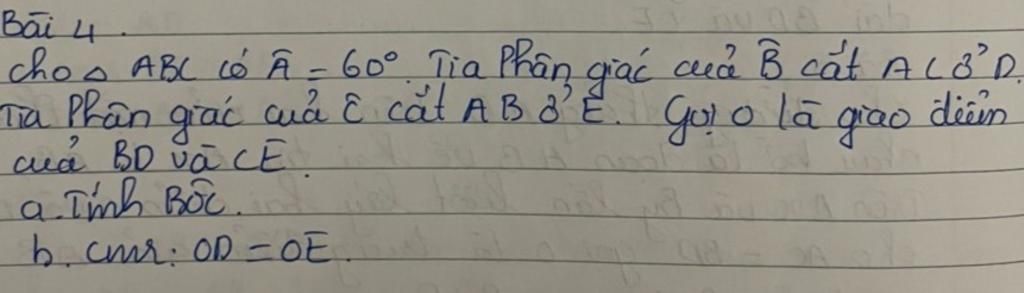 Bài 4.
cho △ ABC có Â = 60°. Tia Phân giác của B̂ cắt AC ở D.
Tia Phân giác của Ĉ cắt AB ở E. Gọi O là giao điểm
của BD và CE.
a. Tính BÔC.
b. cmr: OD = OE.